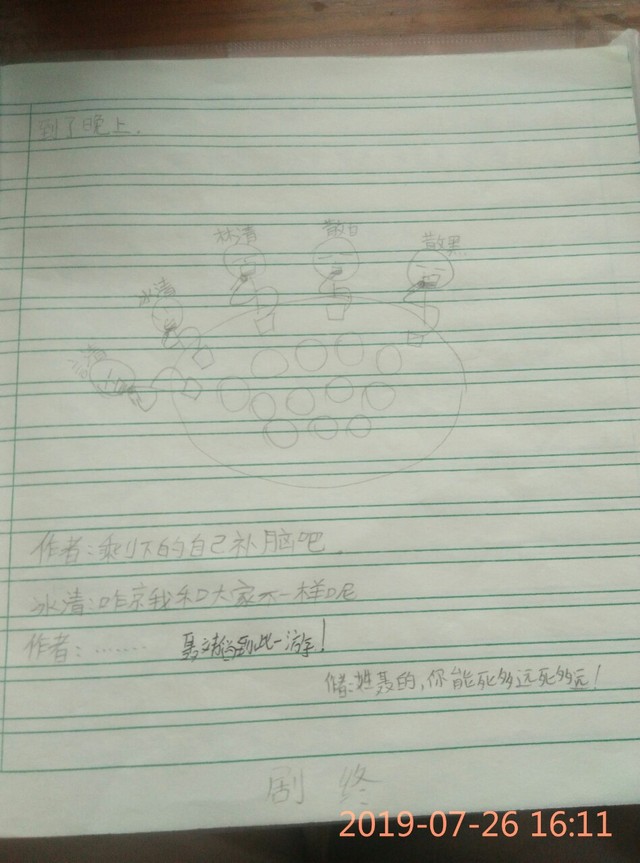 到了晚上.
林清
散白
散黑
冰清
作者:剩下的自己补脑吧.
冰清:咋就我和大家不一样呢
作者:……
到此一游!
姓聂的,你能死多远死多远!
剧 终
2019-07-26 16:11